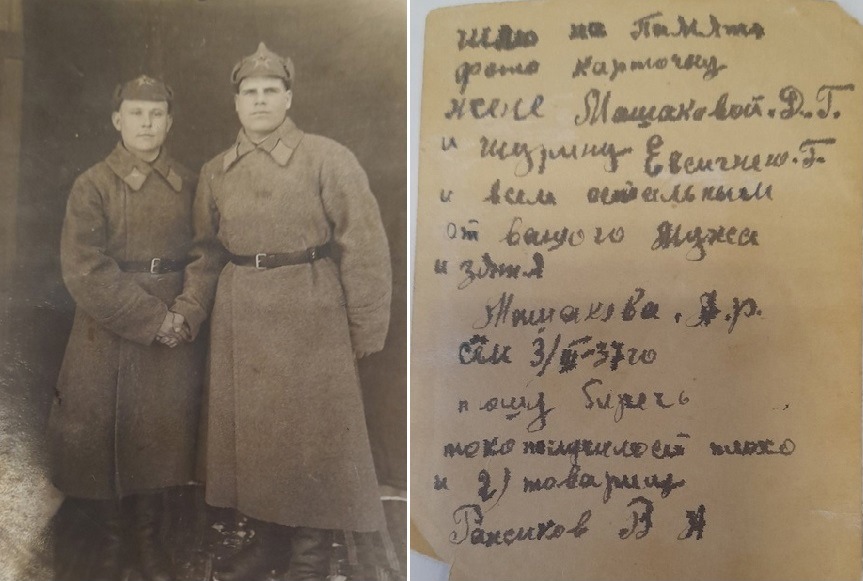 шлю на Память
фото карточку
жене Машаковой. Д. Г.
и шурину Евсигнею. Г.
и всем остальным
от вашого Мужа
и зятя
Машакова.
3/II-37го
прошу беречь
токо получилост плохо
и 2) товарищ
В А